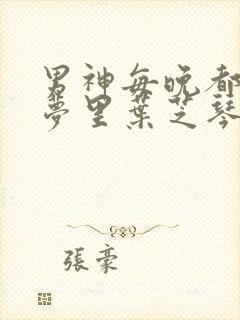 男神每晚都
夢里葉芝琴
張豪